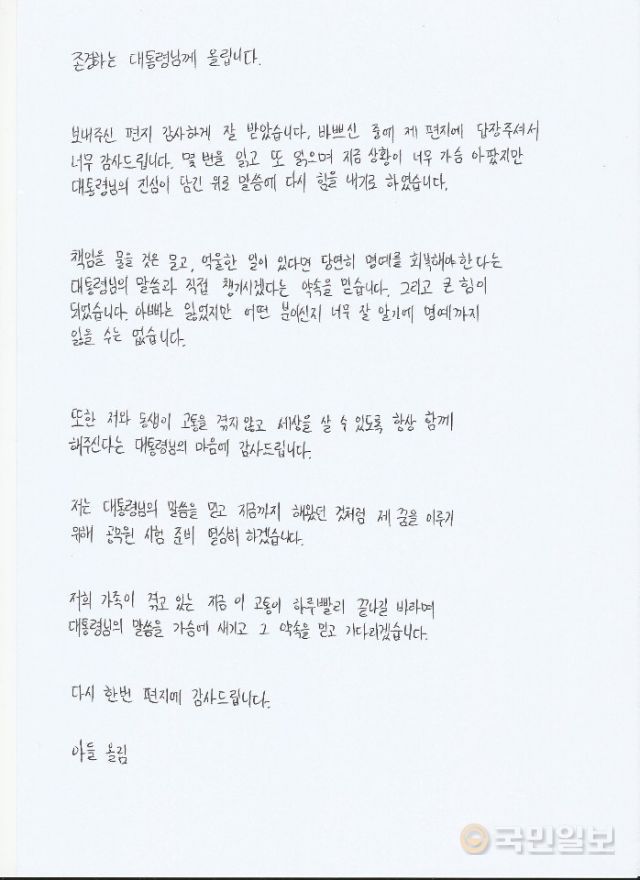 존경하는 대통령님께 올립니다.
보내주신 편지 감사하게 잘 받았습니다. 바쁘신 중에 제 편지에 답장주셔서
너무 감사드립니다. 몇 번을 읽고 또 읽으며 지금 상황이 너무 가슴 아팠지만
대통령님의 진심이 담긴 위로 말씀에 다시 힘을 내기로 하였습니다.
책임을 물을 것은 물고, 억울한 일이 있다면 당연히 명예를 회복해야 한다는
대통령님의 말씀과 직접 챙기시겠다는 약속을 믿습니다. 그리고 큰 힘이
되었습니다. 아빠는 잃었지만 어떤 분이신지 너무 잘 알기에 명예까지
잃을 수는 없습니다.
또한 저와 동생이 고통을 겪지 않고 세상을 살 수 있도록 항상 함께
해주신다는 대통령님의 마음에 감사드립니다.
저는 대통령님의 말씀을 믿고 지금까지 해왔던 것처럼 제 꿈을 이루기
위해 공무원 시험 준비 열심히 하겠습니다.
저희 가족이 겪고 있는 지금 이 고통이 하루빨리 끝나길 바라며
대통령님의 말씀을 가슴에 새기고 그 약속을 믿고 기다리겠습니다.
다시 한번 편지에 감사드립니다.
아들 올림
국민일보